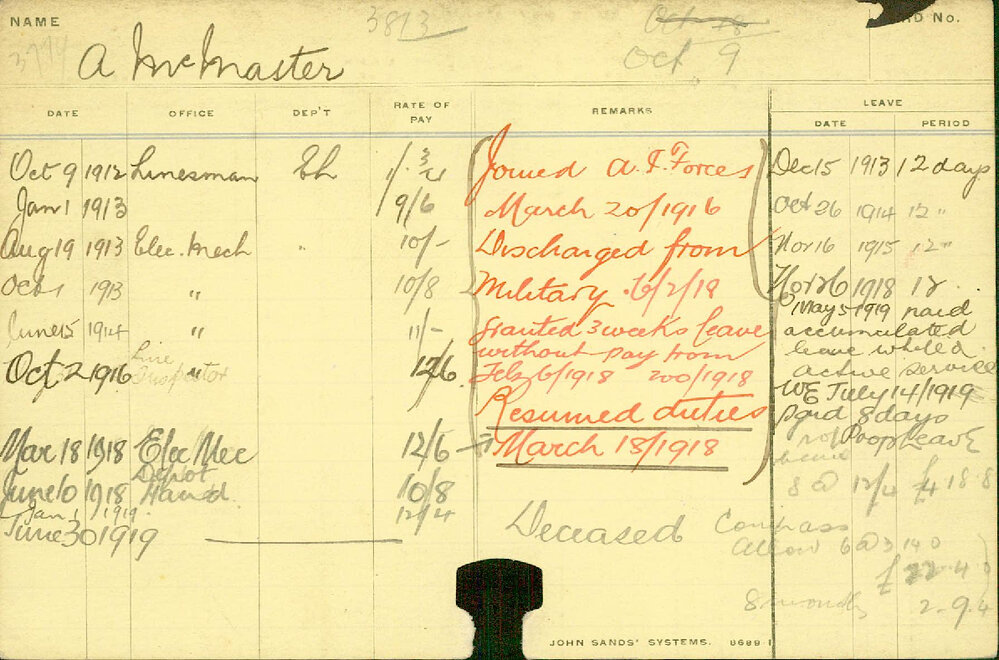 NAME
3813
Oct 18
No.
3774
A McMaster
Oct 9
DATE OFFICE DEP'T RATE OF PAY REMARKS LEAVE
DATE PERIOD
Oct 9 1912 Linesman EL
Jan 1 1913 9/6
Aug 19 1913 Elec. Mech " 10/-
Oct 1 1913 " 10/8
June 15 1914 " 11/-
Oct 2 1916 Line Inspector " 12/6
Mar 18 1918 Elec Mec 12/6
June 10 1918 Depot Hand. 10/8
Jan 1 1919 12/4
June 30 1919
Joined A. I. Forces
March 20/1916
Discharged from
Military 6/2/18
Granted 3 weeks leave
without pay from
Feb 6/1918 200/1918
Resumed duties
March 18/1918
Deceased
Dec 15 1913 12 days
Oct 26 1914 12 "
Nov 16 1915 12 "
Nov 26 1918 12
May 5 1919 paid
accumulated
leave while
active service
WE July 14/1919
paid 8 days
not Leave
8 @ 12/4 £4 18 8
Compass
Allow 6 @ 3 14 0
£ 22. 4. 0
8 months 2. 9. 4
JOHN SANDS' SYSTEMS. 8689